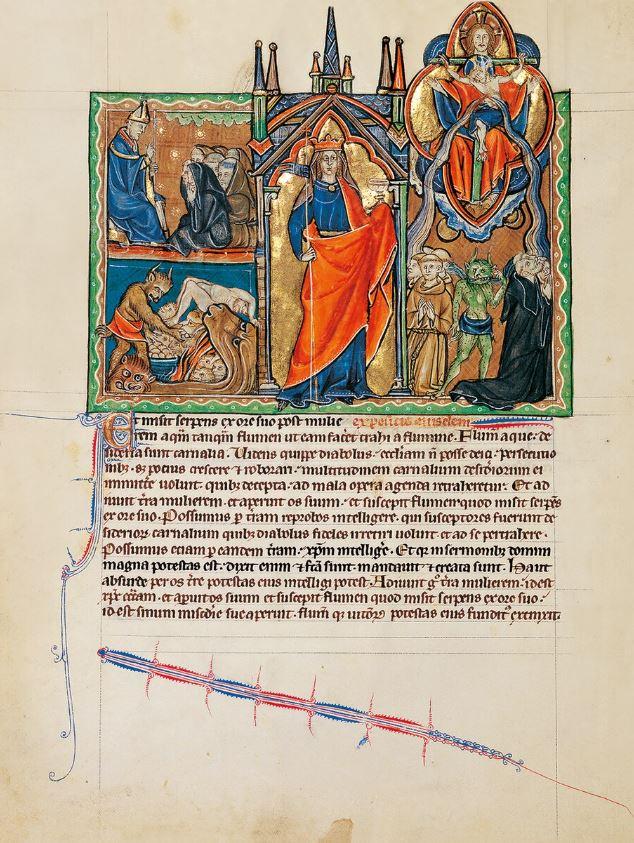 Et misit serpens ex ore suo post mulie expositio eiusdem
rem aq̄m tanq̄m flumen ut eam facet trahi a flumine. Flum̄ aque de
sideria sunt carnalia. Videns quippe diabolus eccl̄iam n̄ posse deici persecutio
nibꝫ ⁊ pocius crescere ⁊ roborari multitudinem carnalium desideriorum ei
immitte voluit quibꝫ decepta ad mala opera agenda retraheretur. Et ad
iuuit tr̄a mulierem ⁊ aperuit os suum ⁊ suscepit flumen quod misit serpēs
ex ore suo. Possumus p̄ tr̄am reprobos intelligere qui susceptores fuerunt de
sideriorum carnalium quibꝫ diabolus fideles irretiri voluit et ad se pertrahere.
Possumus etiam per eandem tr̄am xp̄m intellige. Et qr in sermonibꝫ domini
magna potestas est. dixit enim ⁊ fc̄a sunt mandauit ⁊ creata sunt. Haut
absurde per os tr̄e potestas eius intelligi potest. Adiuuit g° tr̄a mulierem. id est
xp̄c ecc̄iam ⁊ aperuit os suum et suscepit flumen quod misit serpens ex ore suo.
id est sinum misc̄die sue aperuit. flum̄ qꝫ potestas eius exemit.